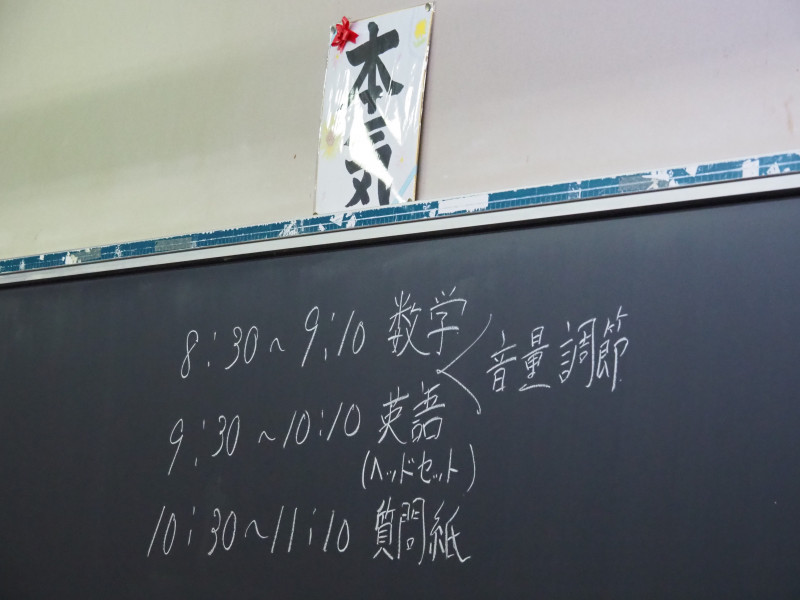 本気
8:30~9:10 数学
音量調節
9:30~10:10 英語
(ヘッドセット)
10:30~11:10 質問紙